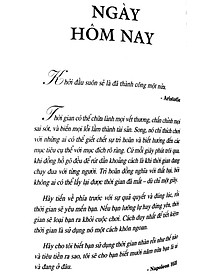 NGÀY
HÔM NAY
Khởi đầu suôn sẻ là đã thành công một nửa.
- Aristotle
Thời gian có thể chữa lành mọi vết thương, chấn chỉnh mọi
sai sót, và biến mọi lỗi lầm thành tài sản. Song, nó chỉ thích
với những ai có thể giết chết sự trì hoãn và biết hướng đến các
mục tiêu cụ thể với mục đích rõ ràng. Cứ mỗi giây phút trôi qua,
khi đồng hồ gõ đều để rút dần khoảng cách là khi thời gian đang
chạy đua với từng người. Trì hoãn đồng nghĩa với thất bại, bởi
không ai có thể lấy lại được thời gian đã mất – dù chỉ một giây.
Hãy tiến về phía trước với sự quả quyết và đúng lúc, rồi
thời gian sẽ yêu mến bạn. Nếu bạn lưỡng lự hay đứng yên, thời
gian sẽ loại bạn ra khỏi cuộc chơi. Cách duy nhất để tiết kiệm
thời gian là sử dụng nó một cách khôn ngoan.
Hãy cho tôi biết bạn sử dụng thời gian nhàn rỗi như thế nào
và tiêu tiền ra sao, tôi sẽ cho bạn biết mười năm nữa bạn là ai
và đang ở đâu.
- Napoleon Hill